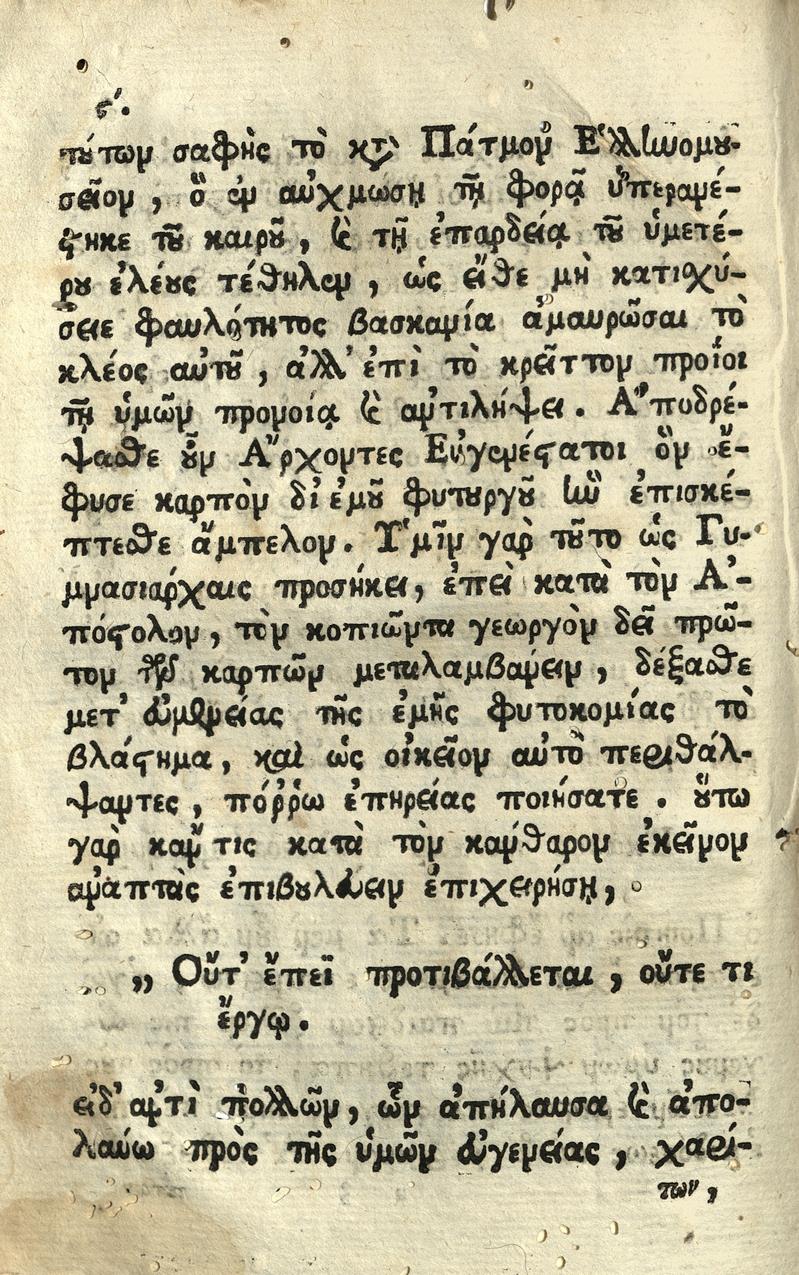 ϛ´.
τούτων σαφὴς τὸ κατὰ Πάτμον Ἑλληνομου-
σεῖον, ὃ ἐν αὐχμώσῃ τῇ φορᾷ ὑπερανέ-
στηκε τοῦ καιροῦ, καὶ τῇ ἐπαρδείᾳ τοῦ ὑμετέ-
ρου ἐλέους τέθηλεν, ὡς εἴθε μὴ κατισχύ-
σειε φαυλότητος βασκανία ἀμαυρῶσαι τὸ
κλέος αὐτοῦ, ἀλλ' ἐπὶ τὸ κρεῖττον προΐοι
τῇ ὑμῶν προνοίᾳ καὶ ἀντιλήψει. Ἀποδρέ-
ψασθε οὖν Ἄρχοντες Εὐγενέστατοι ὃν ἔ-
φυσε καρπὸν δι' ἐμοῦ φυτουργοῦ ἣν ἐπισκέ-
πτεσθε ἄμπελον. Ὑμῖν γὰρ τοῦτο ὡς Γυ-
μνασιάρχαις προσήκει, ἐπεὶ κατὰ τὸν Ἀ-
πόστολον, τὸν κοπιῶντα γεωργὸν δεῖ πρῶ-
τον τῶν καρπῶν μεταλαμβάνειν, δέξασθε
μετ' εὐμενείας τῆς ἐμῆς φυτοκομίας τὸ
βλάστημα, καὶ ὡς οἰκεῖον αὐτὸ περιθάλ-
ψαντες, πόῤῥω ἐπηρείας ποιήσατε. οὕτω
γὰρ κἄν τις κατὰ τὸν κάνθαρον ἐκεῖνον
ἀναπτὰς ἐπιβουλεύειν ἐπιχειρήσῃ,
„ Οὔτ' ἔπεϊ προτιβάλλεται, οὔτε τι
ἔργῳ.
εἰδ' ἀντὶ πολλῶν, ὧν ἀπήλαυσα καὶ ἀπο-
λαύω πρὸς τῆς ὑμῶν εὐγενείας, χαρί-
των,